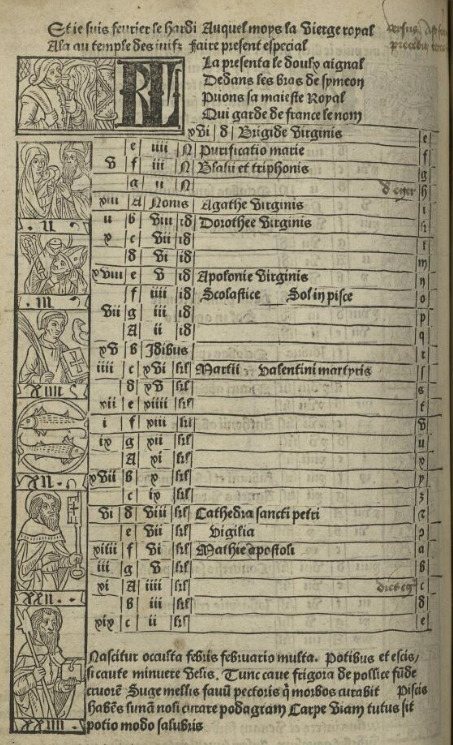 Et ie suis feurier le hardi Auquel moys la Vierge royal
Ala au temple des iuifz faire present especial
La presenta le doulx aignal
Dedans les bras de symeon
Prions sa maieste Royal
Qui garde de france le nom
KL
xvi d Brigide Virginis e
e iiii N Purificatio marie f
v f iii N Blasii et triphonis g
g ii N h
xiii A Nonis Agathe Virginis i
ii b viii id Dorothee Virginis k
x c vii id l
d vi id m
xviii e v id Apolonie Virginis n
f iiii id Scolastice Sol in pisce o
vii g iii id p
A ii id q
xv b Idibus r
iiii c xvi kl Martii Valentini martyris s
d xv kl s
xii e xiiii kl t
i f xiii kl v
ix g xii kl u
A xi kl x
xvii b x kl y
c ix kl z
vi d viii kl Cathedra sancti petri
e vii kl Vigilia
xiiii f vi kl Mathie apostoli a
iii g v kl b
xi A iiii kl c
b iii kl d
xix c ii kl e
.II.
.III.
XIIII
XXII.
XXIIII
Nascitur occulta febris februario multa. Potibus et escis/
si caute minuere velis. Tunc cave frigora de pollice fūde
cruorē Suge mellis favū pectoris q̄ morbos curabit Piscis
habēs lunā noli curare podagram Carpe viam tutus sit
potio modo salubris